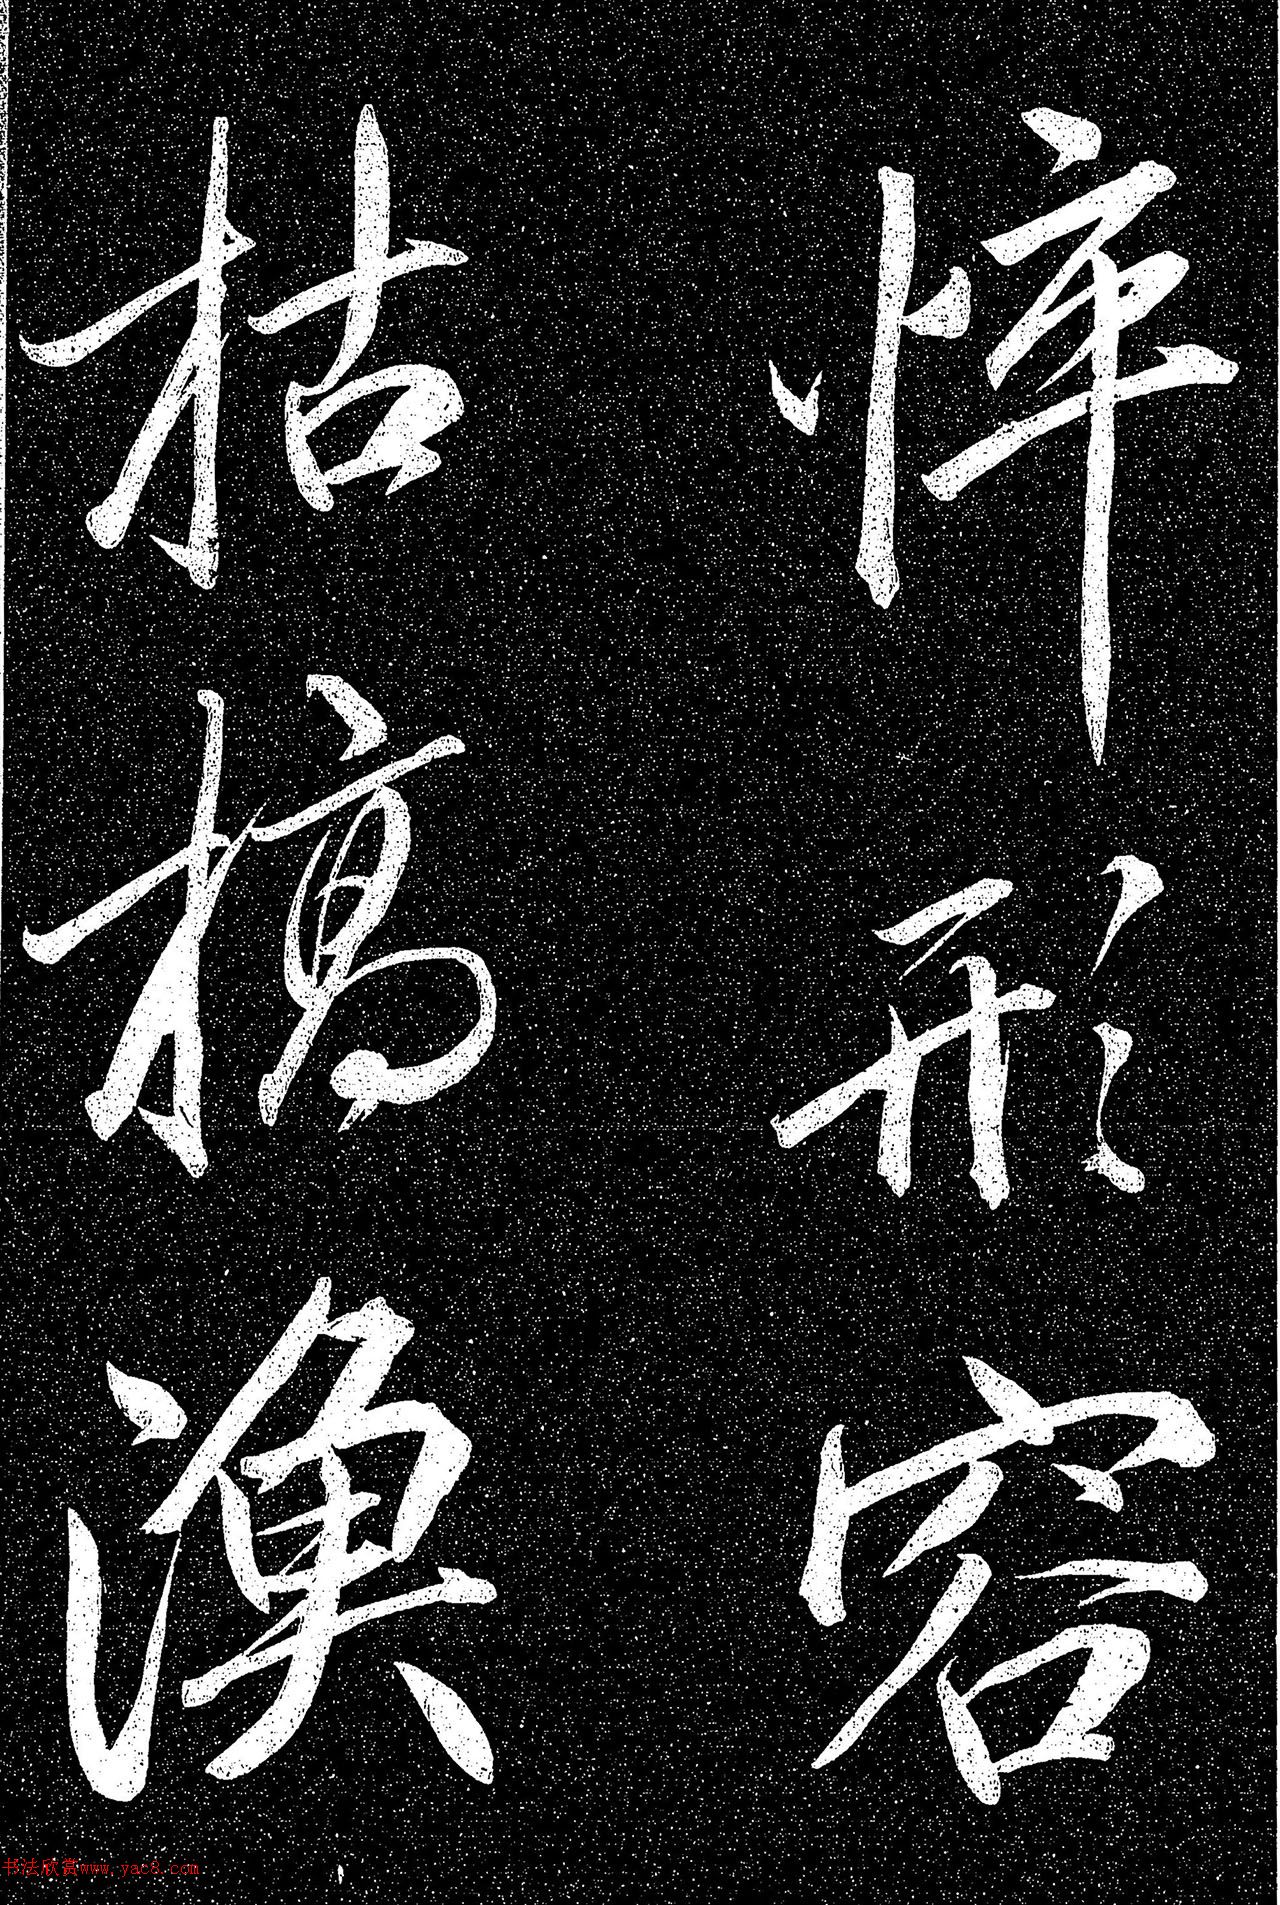 悴形容
枯槁漁
书法欣赏www.yac8.com